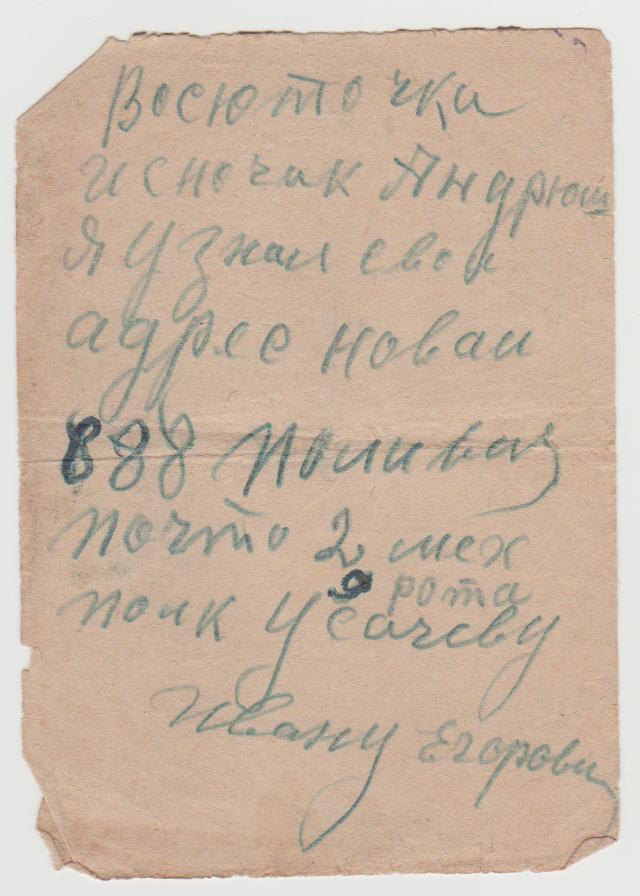 Восюточка
и сночик Андрюш
я узнал свои
адрес новаи
888 поливая
почто 2 мех
9 рота
полк Усачеву
Ивану Егорови